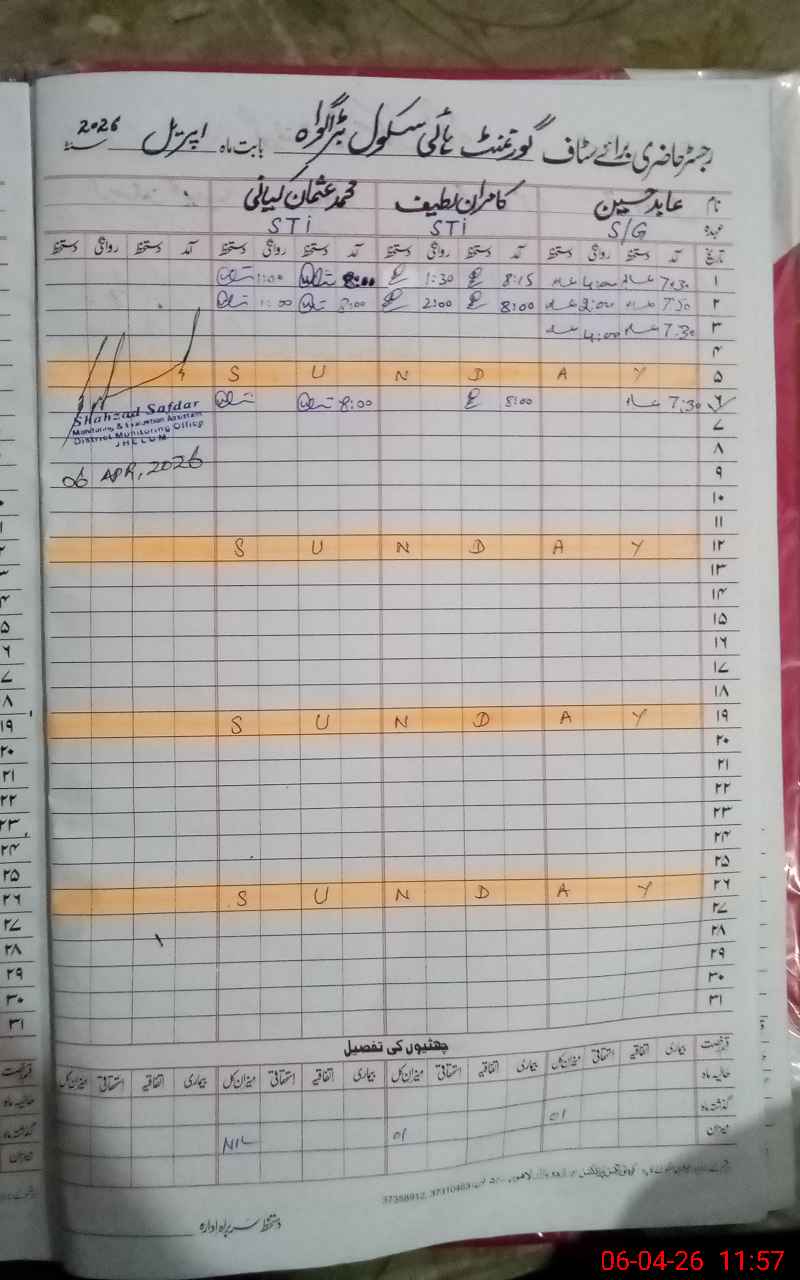 رجسٹر حاضری برائے سٹاف گورنمنٹ ہائی سکول بابت ماہ اپریل 2026
نام عابد حسین کامران لطیف محمد عثمان کیانی
عہدہ S/G STi STi
تاریخ آمد دستخط روانگی دستخط آمد دستخط روانگی دستخط آمد دستخط روانگی دستخط آمد دستخط روانگی دستخط
۱ 7:30 4:00 8:15 1:30 8:00 1:00
۲ 7:30 2:00 8:00 2:00 8:00 1:00
۳ 7:30 4:00
۴
۵ S U N D A Y
۶ 7:30 8:00 8:00
۷
۸
۹
۱۰
۱۱
۱۲ S U N D A Y
۱۳
۱۴
۱۵
۱۶
۱۷
۱۸
۱۹ S U N D A Y
۲۰
۲۱
۲۲
۲۳
۲۴
۲۵
۲۶ S U N D A Y
۲۷
۲۸
۲۹
۳۰
۳۱
Shahzad Safdar
Monitoring & Evaluation Assistant
District Monitoring Office
JHELUM
06 APR, 2026
چھٹیوں کی تفصیل
قسم رخصت بیماری اتفاقیہ استحقاقی میزان کل بیماری اتفاقیہ استحقاقی میزان کل بیماری اتفاقیہ استحقاقی میزان کل بیماری اتفاقیہ استحقاقی میزان کل
حالیہ ماہ
گذشتہ ماہ 01 01 NIL
میزان
37358912, 37310463
دستخط سربراہ ادارہ
06-04-26 11:57